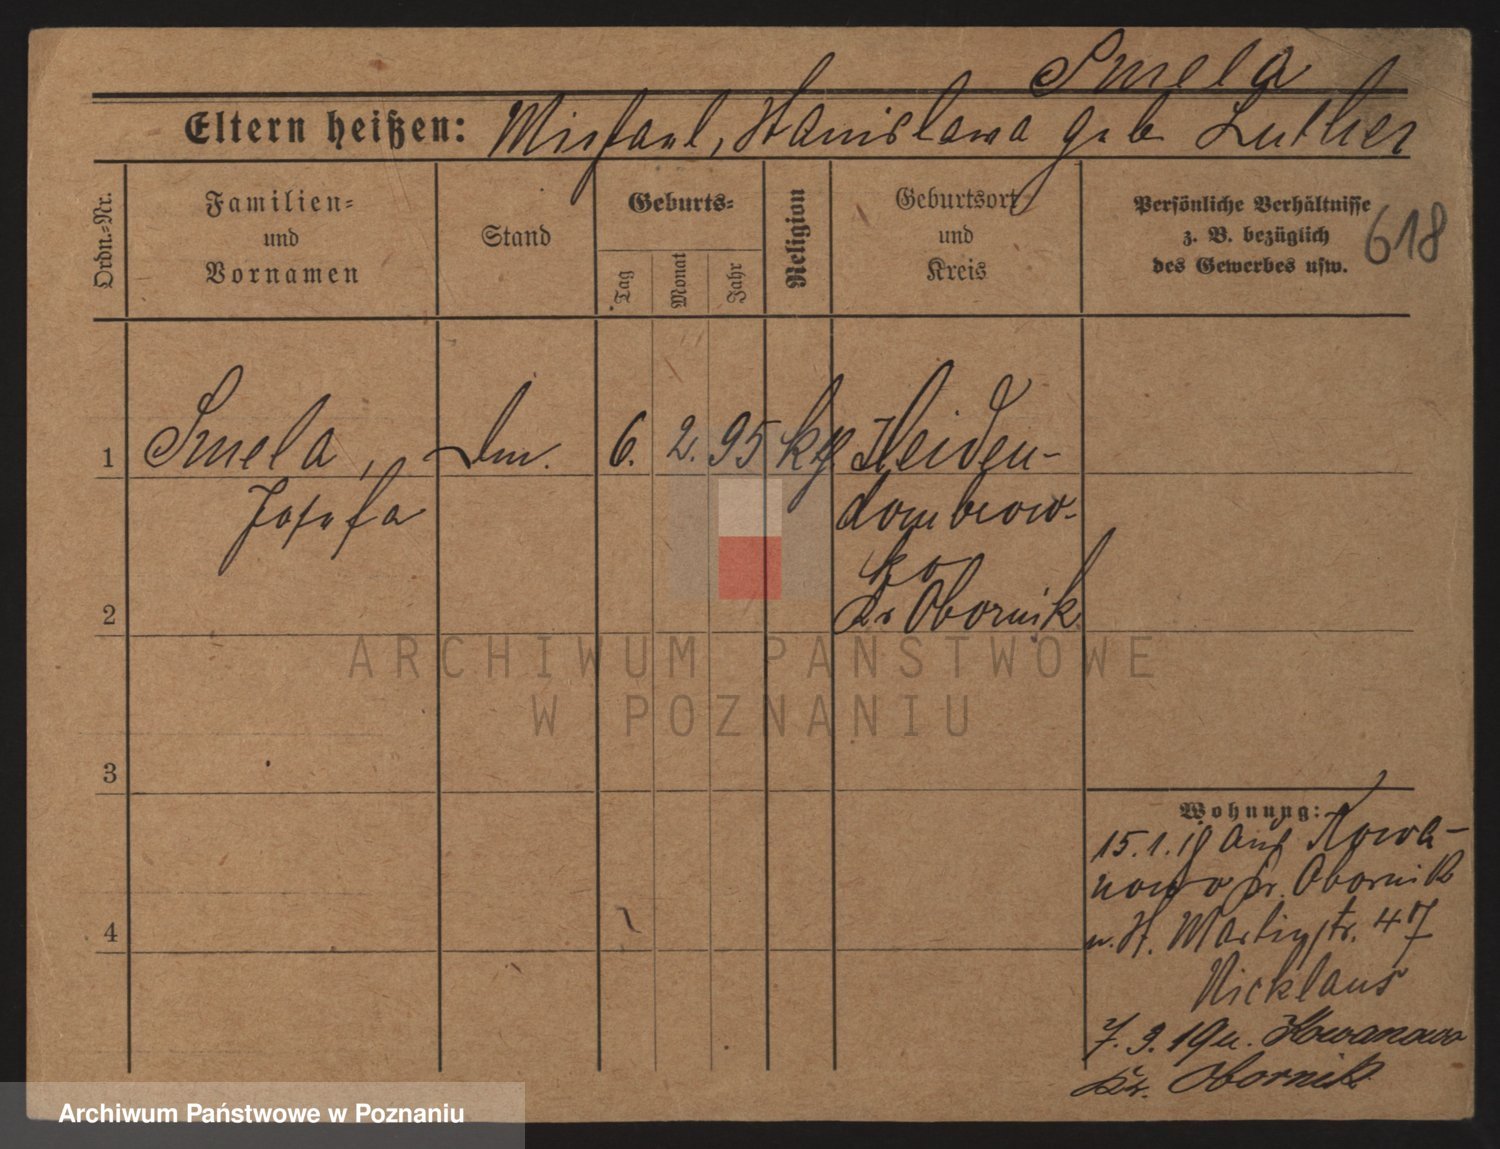 Smela
Eltern heißen: Michael, Stanislawa geb Luther
Ordn.-Nr.
Familien-
und
Vornamen
Stand
Geburts-
Tag
Monat
Jahr
Religion
Geburtsort
und
Kreis
Persönliche Verhältnisse
z. B. bezüglich
des Gewerbes usw.
618
1 Smela, 6. 2. 95 Heiden-
Josefa dombrow-
ko
2 Kr Obornik
3
4
Wohnung:
15.1.19 aus Kowa-
nowo Kr. Obornik
n. St. Martinstr. 47
Nicklaus
7. 3. 19 n. Kowanowo
Kr. Obornik
ARCHIWUM PAŃSTWOWE
W POZNANIU
Archiwum Państwowe w Poznaniu